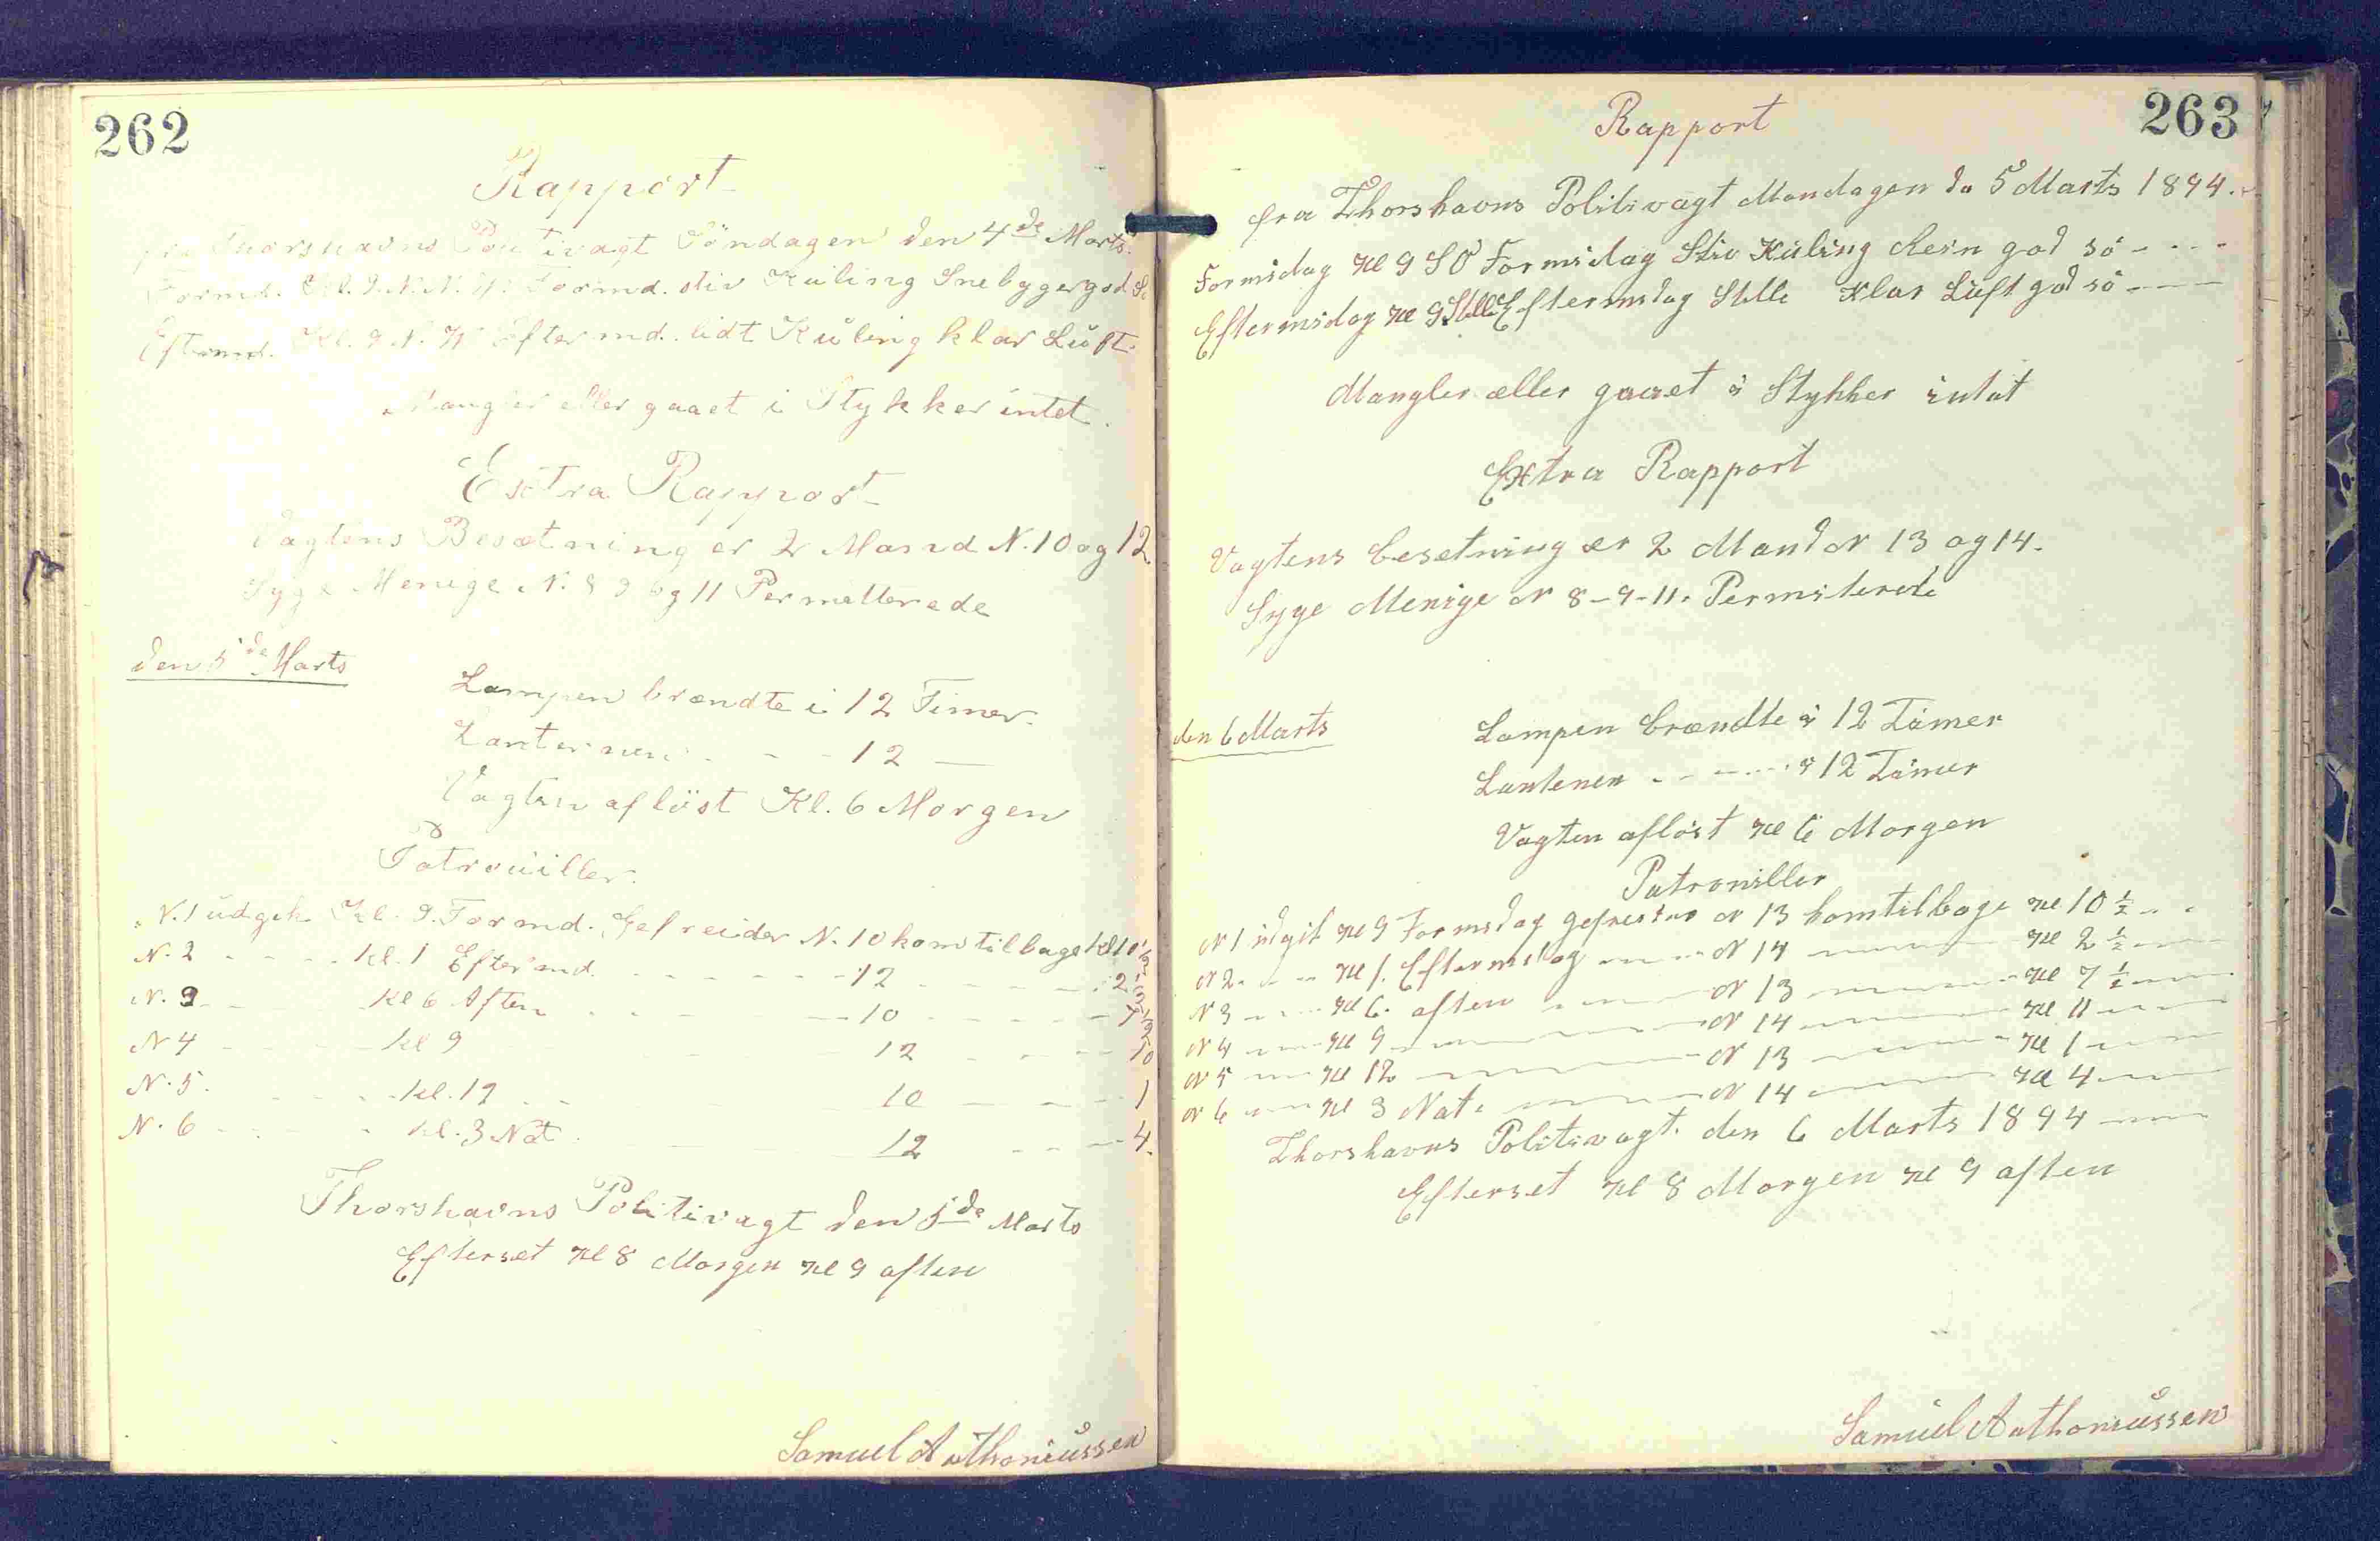 262
Rapport
fra Thorshavns Politivagt Söndagen den 4de Marts.
Formd. Kl. 9. N.N.W. Formd. stiv Kuling Snebygergod S
Eftermd. Kl. 9 N. W Eftermd. lidt Kuling klar Luft.
Mangler eller gaaet i Stykker intet.
Extra Rapport
Vagtens Besætning er 2 Mand N. 10 og 12
Syge Menige N. 8 9 og 11 Permetterede
den 5de Marts
Lampen brændte i 12 Timer.
Lanternen - - - 12 —
Vagten aflöst Kl. 6 Morgen
Patrouiller.
N. 1 udgik Kl. 9. Formd. Gefreider N. 10 kom tilbage Kl 10 1/2
N. 2 - - - Kl. 1 Eftermd. - - - - - 12 - - - - 2 1/2
N. 3 - - - Kl 6 Aften - - - - 10 - - - - 7 1/2
N 4 - - - Kl 9 - - - - 12 - - - - 10
N. 5. - - - Kl. 12 - - - - 10 - - - - 1
N. 6 - - - Kl. 3 Nat - - - - 12 - - - 4.
Thorshavns Politivagt den 5de Marts
Efterset Kl 8 Morgen Kl 9 aften
Samuel Anthoniussen
263
Rapport
fra Thorshavns Politivagt Mandagen da 5 Marts 1894.
Formidag Kl 9 SO Formidag Stiv Kuling Rein god sö - - - -
Eftermidag Kl 9 Stille Eftermidag Stille Klar Luft god sö - - -
Mangler æller gaaet i Stykker intat
Extra Rapport
Vagtens besetning er 2 Mand N 13 og 14.
Syge Menige N 8 - 9 - 11. Permiterede
den 6 Marts
Lampen brændte i 12 Timer
Lantenen - - - - - i 12 Timer
Vagten aflöst Kl 6 Morgen
Patrouiller
N 1 udgik Kl 9 Formidag gefreider N 13 komtilbage Kl 10 1/2 - -
N 2. - - - Kl 1. Eftermidag - - - N 14 - - - Kl 2 1/2 - -
N 3 - - - Kl 6. aften - - - N 13 - - - Kl 7 1/2 - -
N 4 - - - Kl 9 - - - N 14 - - - Kl 11 - -
N 5 - - - Kl 12 - - - N 13 - - - Kl 1 - -
N 6 - - - Kl 3 Nat. - - - N 14 - - - Kl 4 - -
Thorshavns Politivagt. den 6 Marts 1894 - -
Efterset Kl 8 Morgen Kl 9 aften
Samuel Anthoniussen